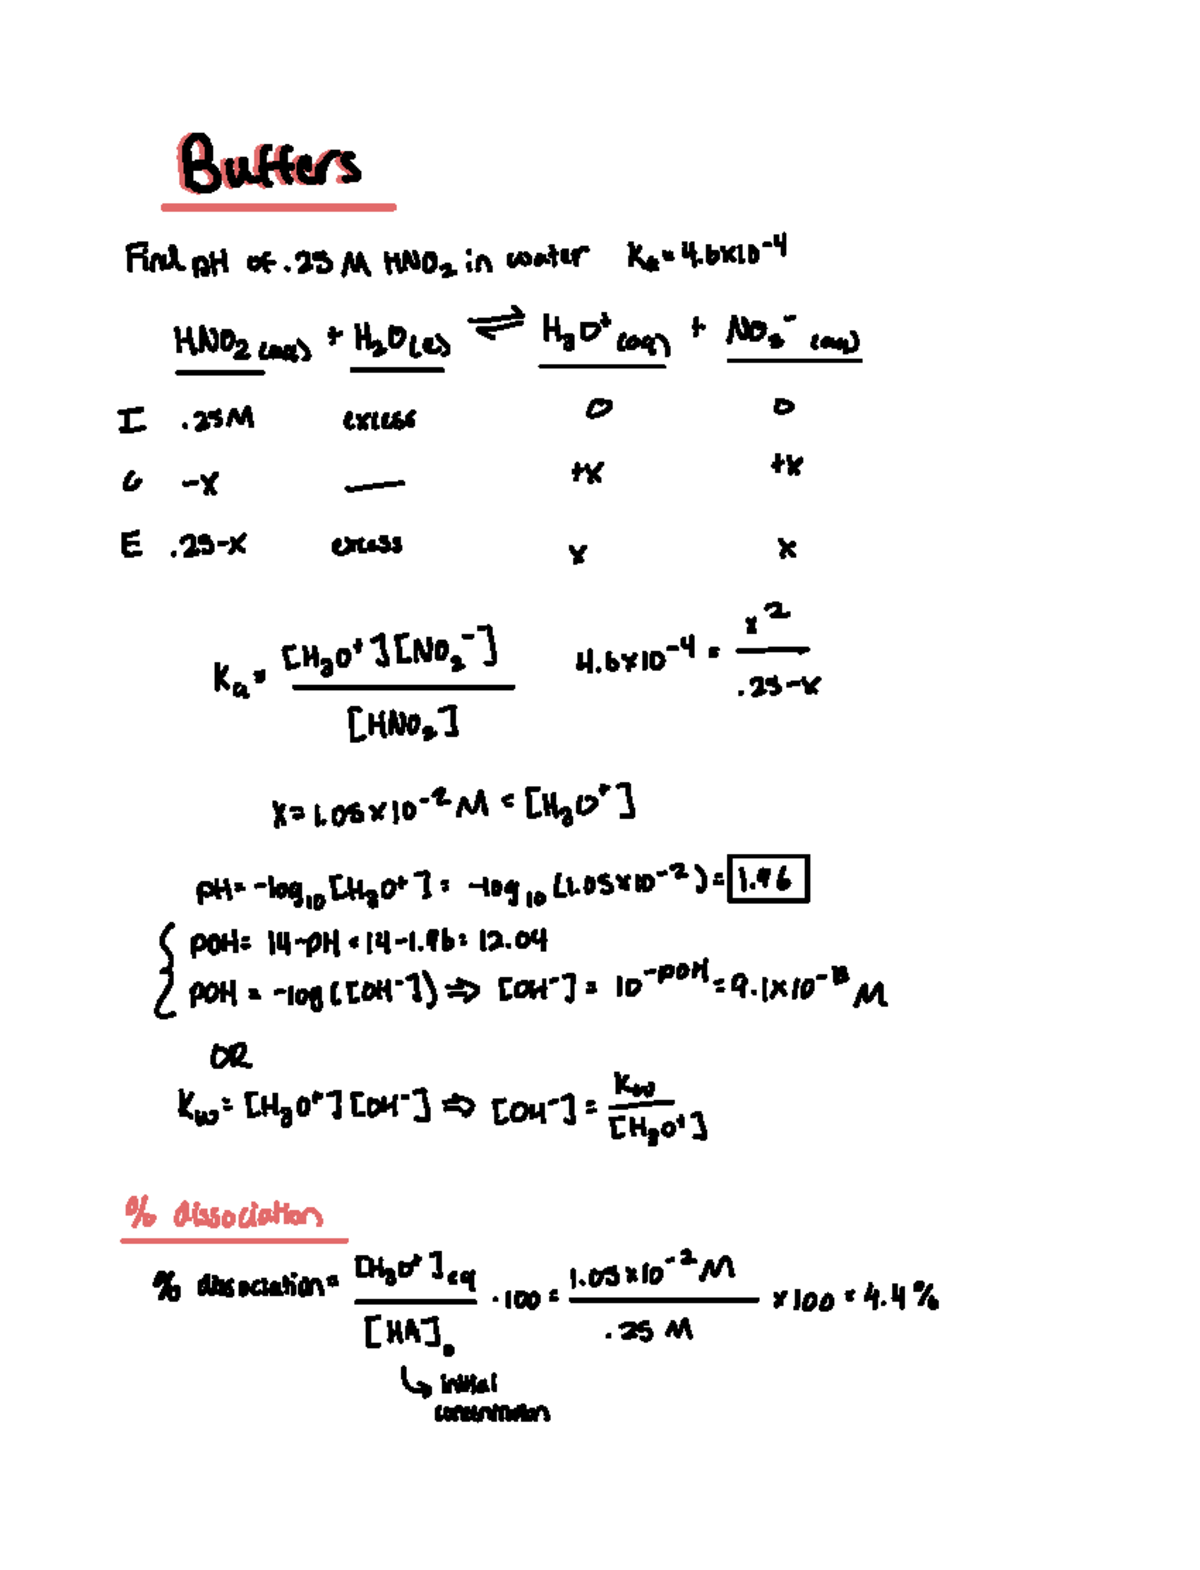 Buffers
Find pH of .25 M HNO₂ in water Kₐ = 4.6x10⁻⁴
HNO₂(aq) + H₂O(l) ⇌ H₃O⁺(aq) + NO₂⁻(aq)
I .25M excess 0 0
C -x — +x +x
E .25-x excess x x
Kₐ = [H₃O⁺][NO₂⁻] / [HNO₂] 4.6x10⁻⁴ = x² / .25-x
x = 1.05x10⁻² M = [H₃O⁺]
pH = -log₁₀[H₃O⁺] = -log₁₀(1.05x10⁻²) = 1.96
pOH = 14-pH = 14-1.96 = 12.04
pOH = -log([OH⁻]) ⇒ [OH⁻] = 10⁻ᵖᴼᴴ = 9.1x10⁻¹³ M
OR
Kw = [H₃O⁺][OH⁻] ⇒ [OH⁻] = Kw / [H₃O⁺]
% dissociation
% dissociation = [H₃O⁺]eq / [HA]₀ · 100 = 1.05x10⁻² M / .25 M x 100 = 4.4%
↳ initial
concentration